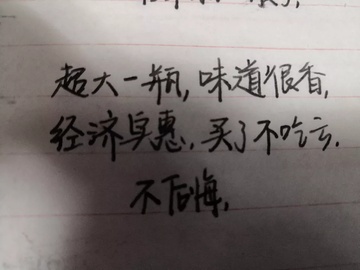 超大一瓶,味道很香,
经济实惠,买了不吃亏.
不后悔,